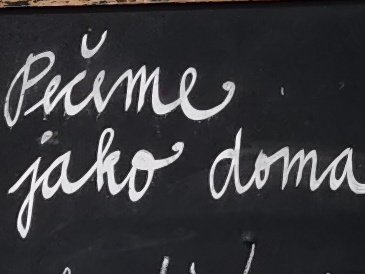 Pečeme
jako doma